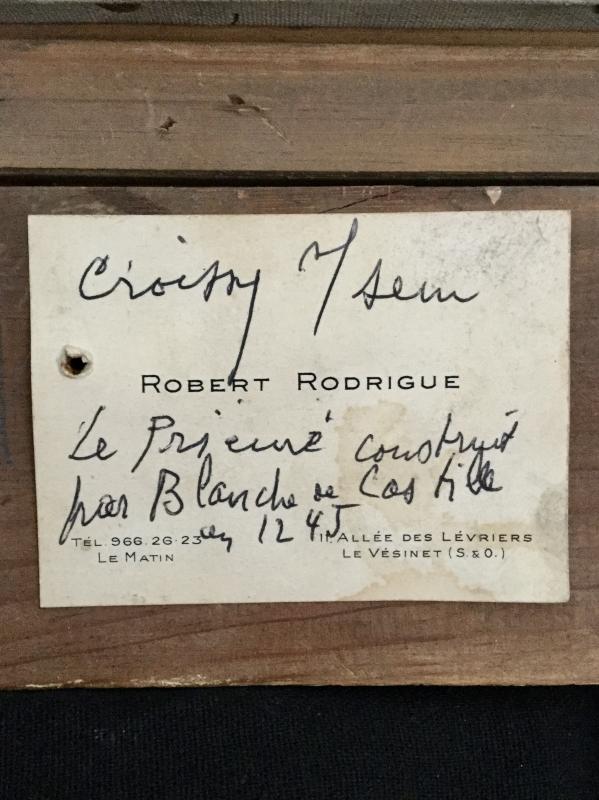 Croissy s/ Seine
ROBERT RODRIGUE
Le Prieuré construit
par Blanche de Castille
en 1245
TÉL. 966.26.23
11, ALLÉE DES LÉVRIERS
LE MATIN
LE VÉSINET (S.&O.)